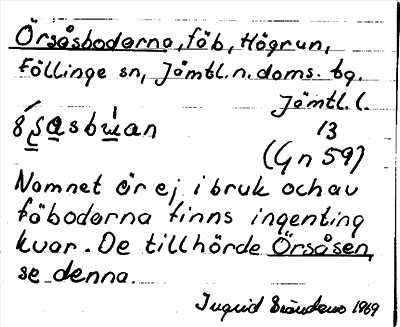 Örsåsbodarna, fäb, Högrun,
Föllinge sn, Jämtl. n. doms. tg.
Jämtl. l.
13
(Gn 59)
Namnet är ej i bruk och av
fäbodarna finns ingenting
kvar. De tillhörde Örsåsen,
se denna.
Ingrid 1969